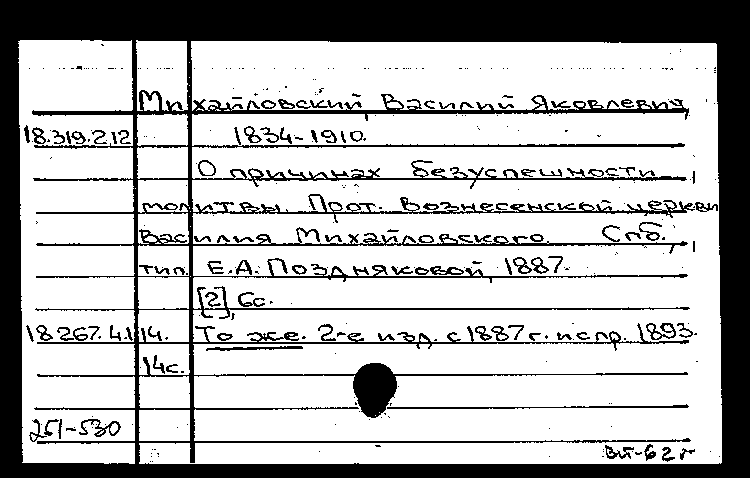 Михайловский, Василий Яковлевич,
18.319.2.12 1834-1910.
О причинах безуспешности
молитвы. Прот. Вознесенской церкви
Василия Михайловского. Спб.,
тип. Е.А. Поздняковой, 1887.
[2], 6с.
18.267.4.114. То же. 2-е изд. с 1887 г. испр. 1893.
14с.
251-530